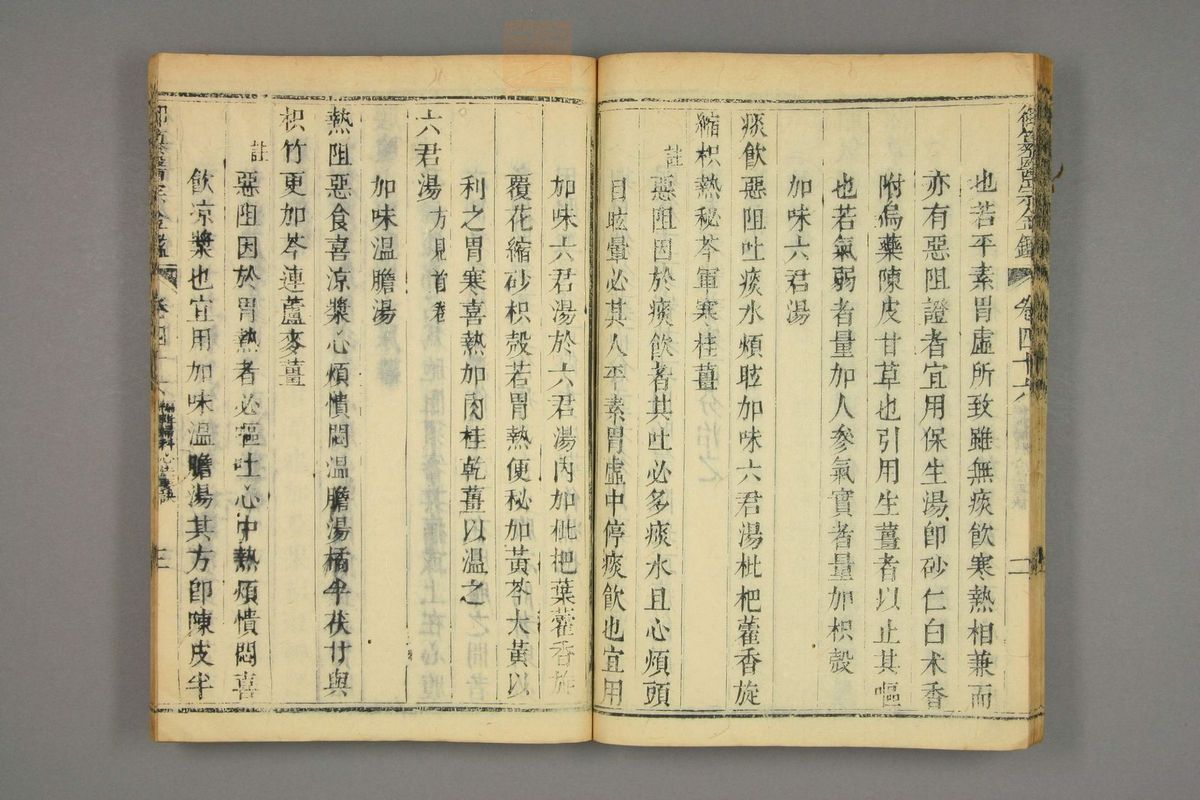 御纂醫宗金鑑 卷四十六 二
也若平素胃虛所致雖無痰飲寒熱相兼而
亦有惡阻證者宜用保生湯卽砂仁白术香
附烏藥陳皮甘草也引用生薑者以止其嘔
也若氣弱者量加人參氣實者量加枳殼
加味六君湯
痰飲惡阻吐痰水煩眩加味六君湯枇杷藿香旋
縮枳熱秘芩軍寒桂薑
註
惡阻因於痰飲者其吐必多痰水且心煩頭
目眩暈必其人平素胃虛中停痰飲也宜用
加味六君湯於六君湯內加枇杷葉藿香旋
覆花縮砂枳殼若胃熱便秘加黃芩大黃以
利之胃寒喜熱加肉桂乾薑以溫之
六君湯 方見首卷
加味溫膽湯
熱阻惡食喜涼漿心煩憒悶溫膽湯橘半茯甘與
枳竹更加芩連蘆麥薑
註
惡阻因於胃熱者必嘔吐心中熱煩憒悶喜
飲凉漿也宜用加味溫膽湯其方卽陳皮半
御纂醫宗金鑑 卷四十六 編輯婦科心法要訣 三